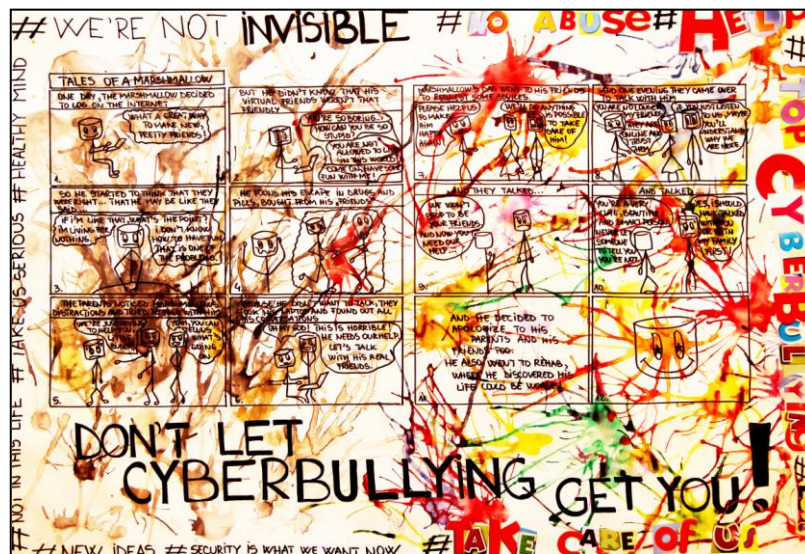 # WE'RE NOT INVISIBLE # NO ABUSE # HELP
# NOT IN THIS LIFE # TAKE US SERIOUS # HEALTHY MIND
TALES OF A MARSHMALLOW
ONE DAY, THE MARSHMALLOW DECIDED
TO LOG ON THE INTERNET
WHAT A GREAT WAY
TO MAKE NEW,
PRETTY FRIENDS
1.
BUT HE DIDN'T KNOW THAT HIS
VIRTUAL FRIENDS WEREN'T THAT
FRIENDLY
YOU'RE SO BORING..?
HOW CAN YOU BE SO
STUPID?
YOU ARE NOT
ALLOWED TO
IN THIS WORLD
COME ON, HAVE SOME
FUN WITH ME!
2.
SO HE STARTED TO THINK THAT THEY
WERE RIGHT... THAT HE MAY BE LIKE THEY
SAID...
IF I'M LIKE THAT, WHAT'S THE POINT?
I'M LIVING FOR
NOTHING.
I DON'T KNOW
HOW TO HAVE FUN
THAT IS ONE OF
THE PROBLEMS.
3.
HE FOUND HIS ESCAPE IN DRUGS AND
PILLS, BOUGHT FROM HIS "FRIENDS"
4.
THE PARENTS NOTICED
DISTRACTIONS AND TRIED
WE'RE JUST TRYING
TO HELP
BUDDY
YOU CAN
TELL US
WHAT'S
GOING
ON
5.
BECAUSE HE DIDN'T WANT TO TALK, THEY
TOOK HIS LAPTOP AND FOUND OUT ALL
HIS CONVERSATIONS
OH MY GOD! THIS IS HORRIBLE!
HE NEEDS OUR HELP.
LET'S TALK
WITH HIS REAL
FRIENDS.
6.
MARSHMALLOW'S DAD WENT TO HIS FRIENDS
TO REQUEST SOME ADVICES.
PLEASE HELP US
TO MAKE
HIM
HAPPY
AGAIN!
WE'LL DO ANYTHING
IS POSSIBLE
TO TAKE
CARE OF
HIM!
7.
AND ONE EVENING THEY CAME OVER
TO TALK WITH HIM
ONLINE AND
TRUST
THEM
IF YOU JUST LISTEN
TO US, MAYBE
YOU'LL
UNDERSTAND
WHY WE
ARE HERE
8.
AND THEY TALKED...
WE DIDN'T
STOP TO BE
YOUR FRIENDS
AND NOW YOU
NEED OUR
HELP...
9.
AND TALKED...
YOU'RE A VERY
CUTE, BEAUTIFUL
AND SMART PERSON
NEVER LET
SOMEONE
TO TELL YOU
YOU'RE NOT.
YES, I SHOULD
HAVE TALKED
WITH YOU
OR WITH
MY FAMILY
FIRST!
10.
AND HE DECIDED TO
APOLOGIZE TO HIS
PARENTS AND HIS
FRIENDS TOO.
HE ALSO WENT TO REHAB,
WHERE HE DISCOVERED HIS
LIFE COULD BE
11.
12.
# STOP CYBERBULLYING
DON'T LET
CYBERBULLYING GET YOU!
# NEW IDEAS # SECURITY IS WHAT WE WANT NOW # TAKE CARE OF US